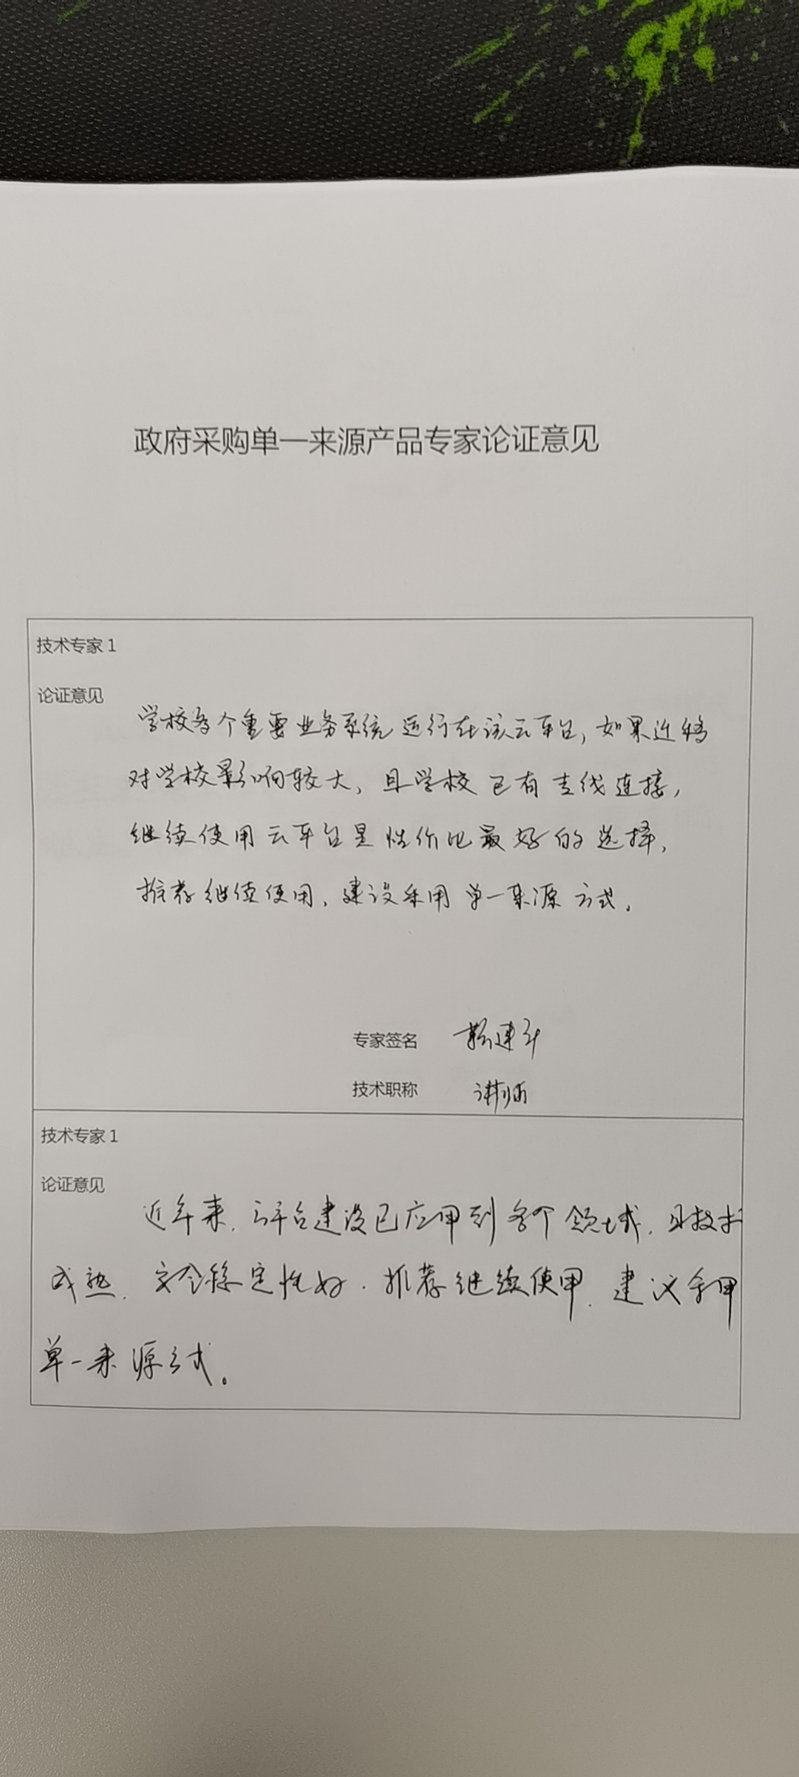 政府采购单一来源产品专家论证意见
技术专家1
论证意见
学校多个重要业务系统运行在该云平台,如果迁移
对学校影响较大,且学校已有专线连接,
继续使用云平台是性价比最好的选择,
推荐继续使用,建议采用单一来源方式。
专家签名
技术职称 讲师
技术专家1
论证意见
近年来,云平台建设已应用到各个领域,且技术
成熟,安全稳定性好.推荐继续使用,建议采用
单一来源方式。